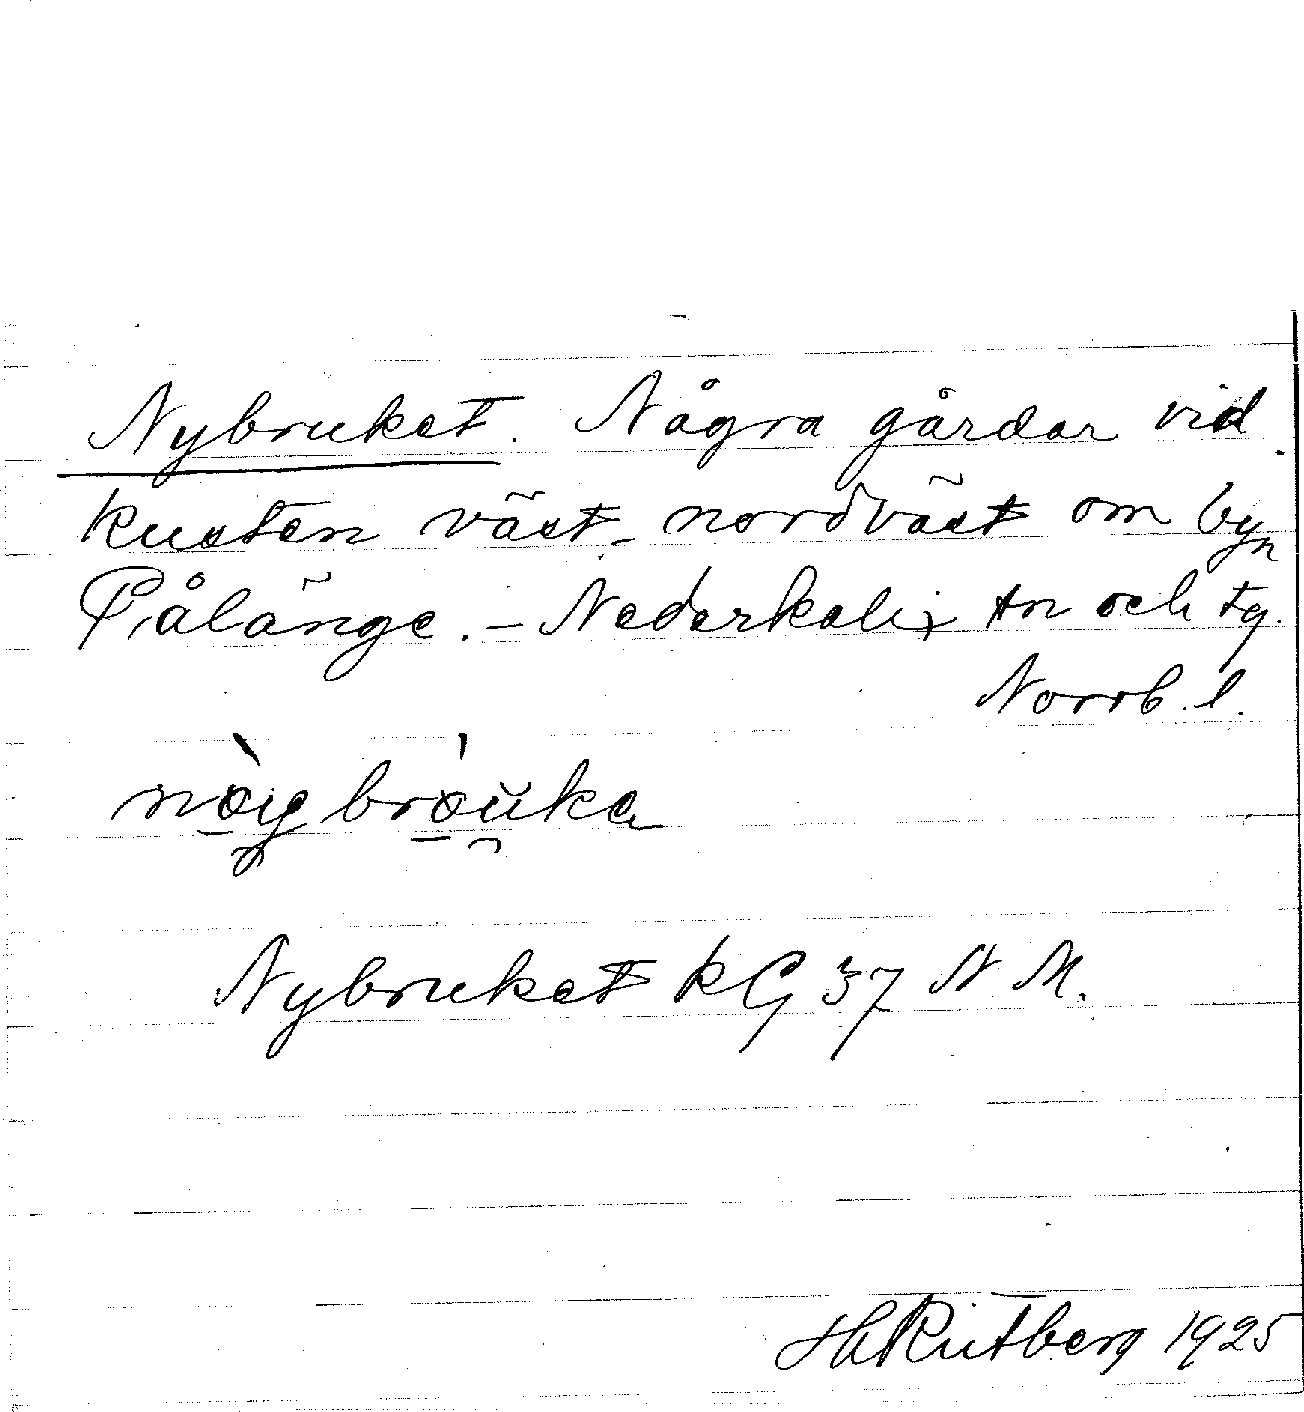 Nybruket. Några gårdar vid
kusten väst-nordväst om byn
Pålänge. – Nederkalix sn och tg.
Norrb. l.
nò̱y̯ bró̱u̯ka
Nybruket k G 37 N M.
H Rutberg 1925